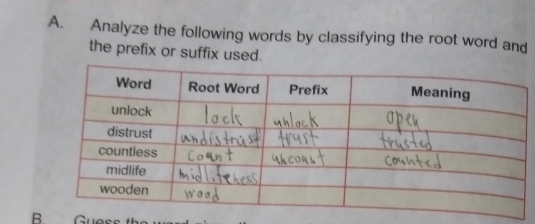 A. Analyze the following words by classifying the root word and
the prefix or suffix used.
Word Root Word Prefix Meaning
unlock lock unlock open
distrust undistrust trust trusted
countless count uncount counted
midlife midlifeness
wooden wood
B. Guess the word